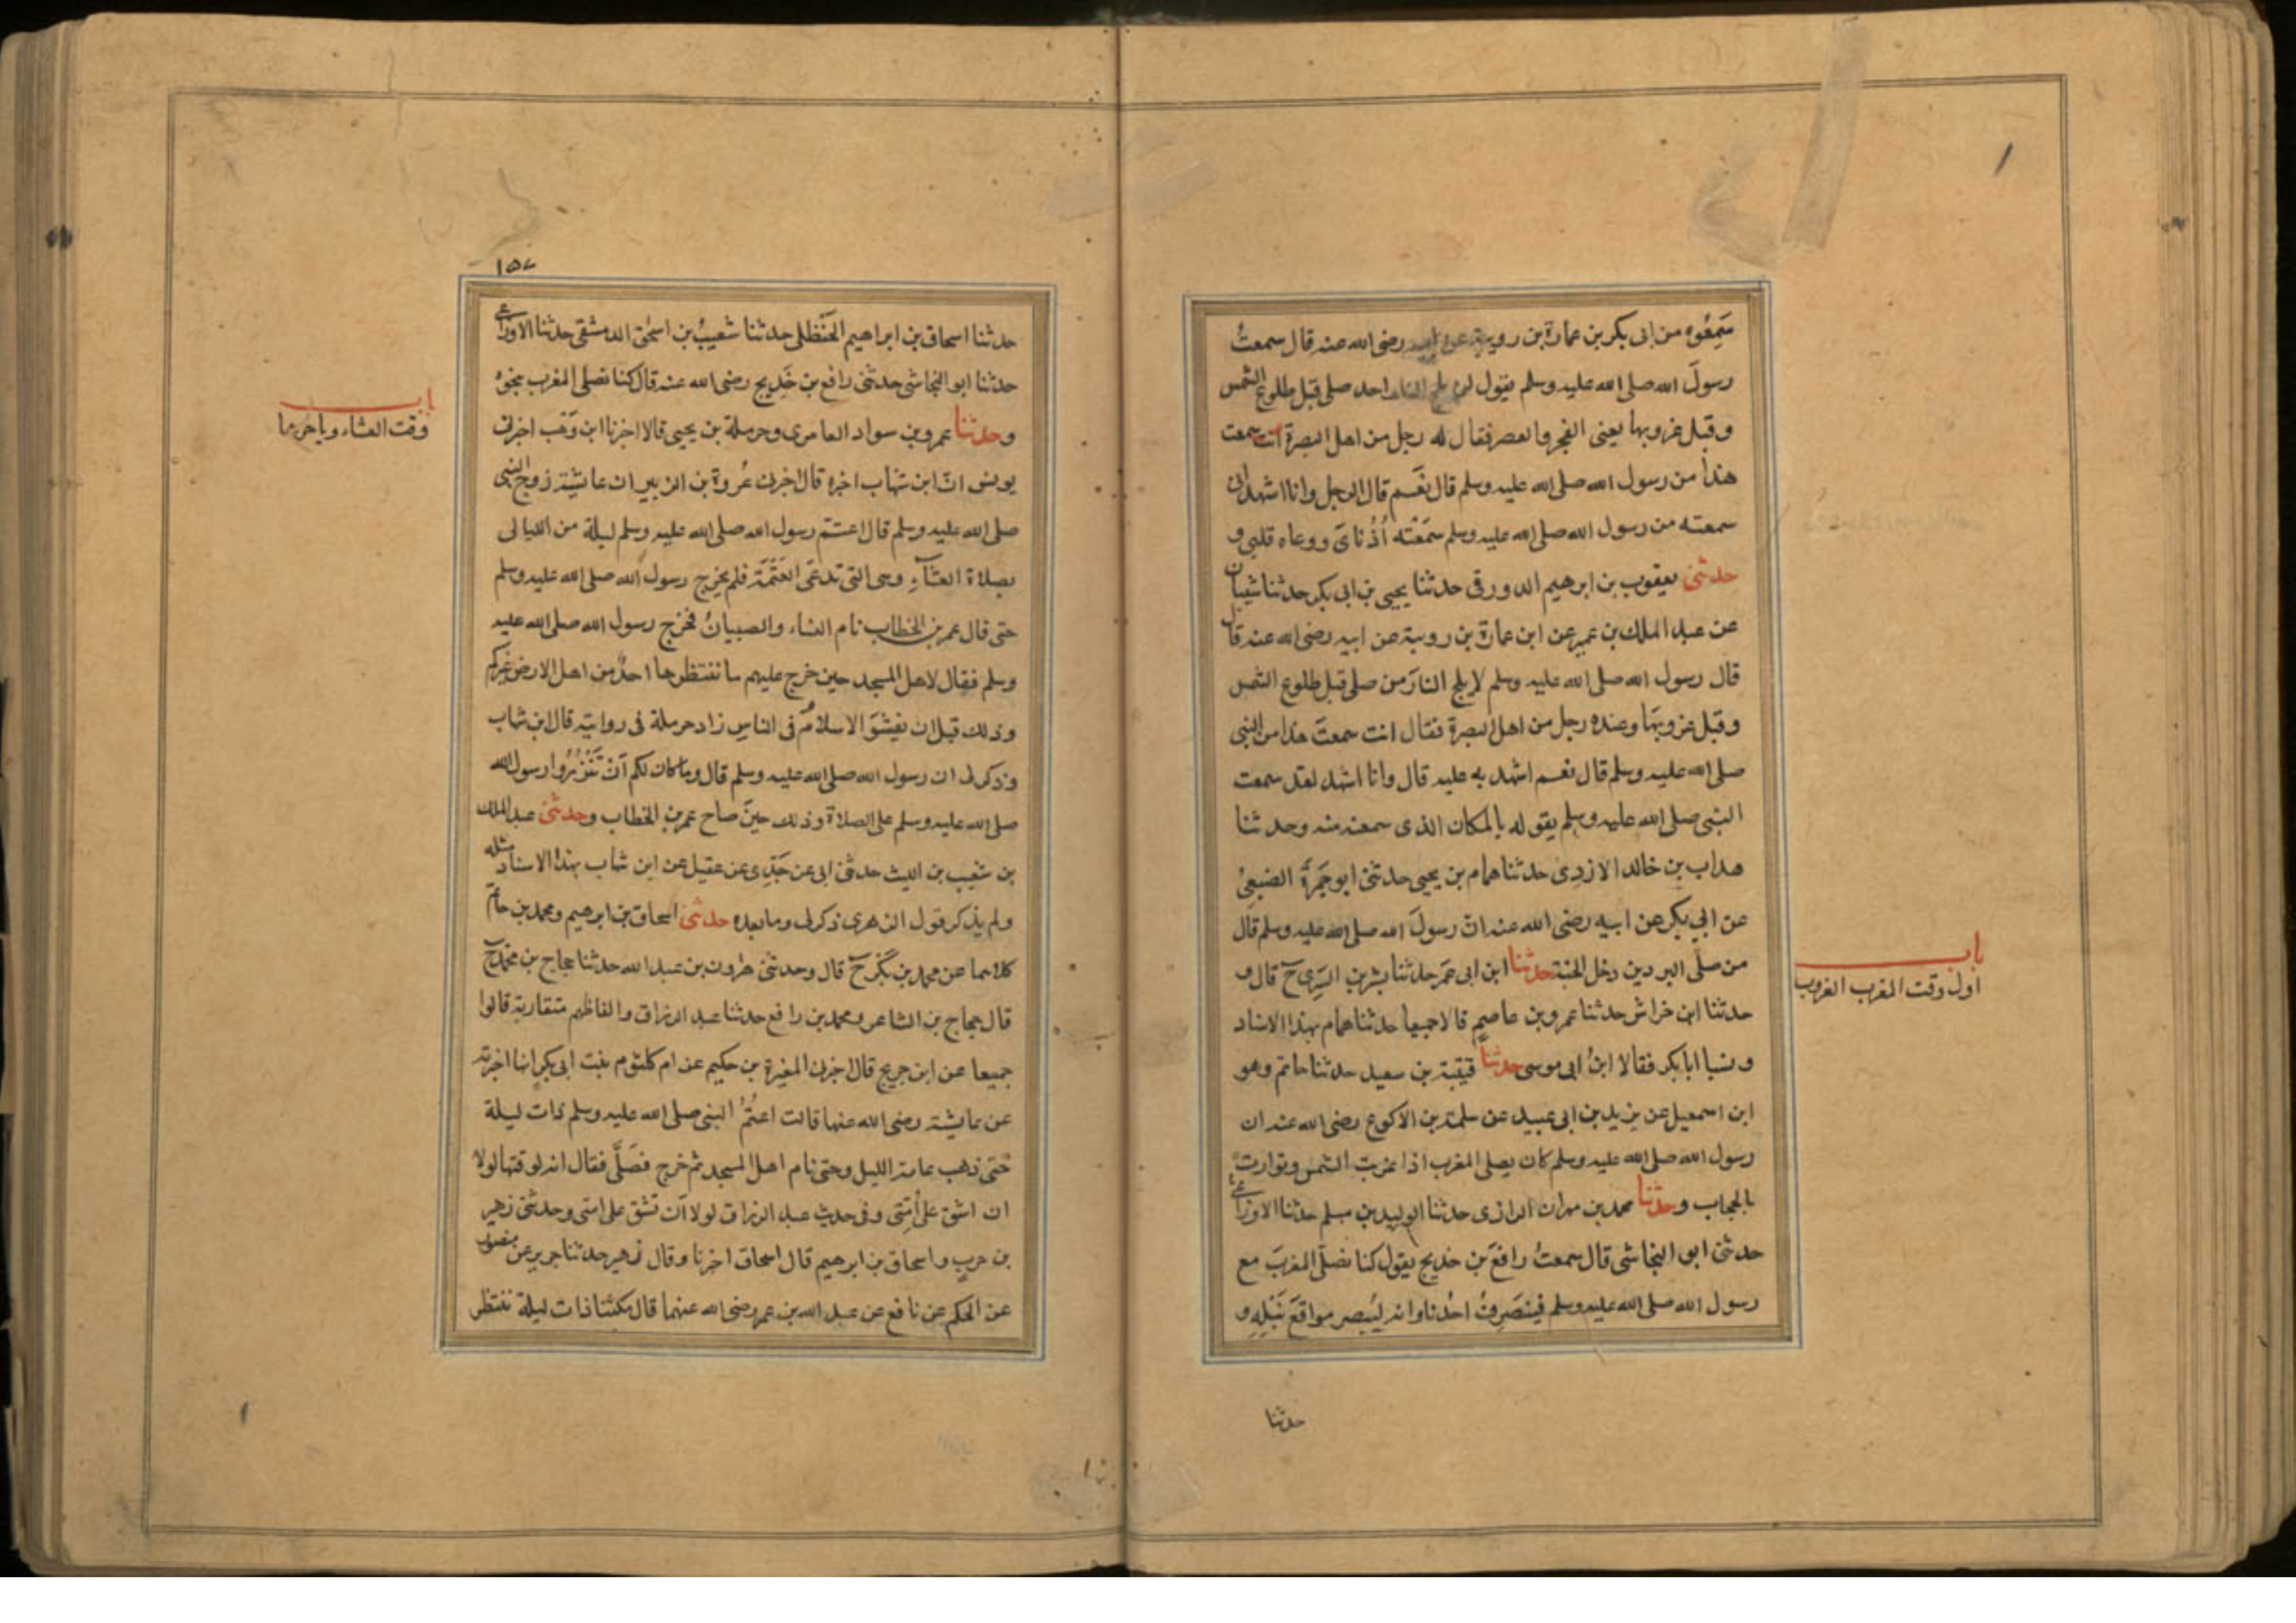 سَمِعُوه من ابى بكر بن عمارة بن رويبة عن ابيه رضى الله عنه قال سمعتُ
رسولَ الله صلى الله عليه وسلم يقول لن يلج النار احد صلى قبل طلوع الشمس
وقبل غروبها يعنى الفجر والعصر فقال له رجل من اهل البصرة آنت سمعت
هذا من رسول الله صلى الله عليه وسلم قال نَعَم قال الرجل وانا اشهد انى
سمعته من رسول الله صلى الله عليه وسلم سَمِعَتْه اُذُناىَ ووعاه قلبى و
حدثنى يعقوب بن ابرهيم الدورقى حدثنا يحيى بن ابى بكر حدثنا شيبان
عن عبد الملك بن عمير عن ابن عمارة بن رويبة عن ابيه رضى الله عنه قال
قال رسول الله صلى الله عليه وسلم لا يلج النارَ من صلى قبل طلوع الشمس
وقبل غروبها وعنده رجل من اهل البصرة فقال انت سمعتَ هذا من النبى
صلى الله عليه وسلم قال نعم اشهد به عليه قال وانا اشهد لقد سمعت
النبى صلى الله عليه وسلم يقوله بالمكان الذى سمعته منه وحدثنا
هداب بن خالد الازدى حدثنا همام بن يحيى حدثنى ابو جَمرَةَ الضبعىُ
عن ابي بكر عن ابيه رضى الله عنه انّ رسولَ الله صلى الله عليه وسلم قال
من صلَّى البردين دخل الجنة حدثنا ابن ابى عمر حدثنا بشر بن السَّرِى ح قال و
حدثنا ابن خراش حدثنا عمرو بن عاصمٍ قالا جميعا حدثنا همام بهذا الاسناد
ونسبا ابا بكر فقالا ابنُ ابى موسى حدثنا قتيبة بن سعيد حدثنا حاتم وهو
ابن اسمعيل عن يزيد بن ابى عبيد عن سلمة بن الاكوع رضى الله عنه ان
رسول الله صلى الله عليه وسلم كان يصلى المغرب اذا غربت الشمس وتوارت
بالحجاب وحدثنا محمد بن مهران الرازى حدثنا الوليد بن مسلم حدثنا الاوزاعى
حدثنى ابو النجاشى قال سمعتُ رافعَ بن خديج يقول كنا نصلّى المغربَ مع
رسول الله صلى الله عليه وسلم فينصَرِفُ احدُنا وانه ليُبصر مواقعَ نَبْلِه و
حدثنا
باب
اول وقت المغرب الغروب
١٥٧
حدثنا اسحاق بن ابراهيم الحَنْظلى حدثنا شعيبُ بن اسحٰق الدمشقى حدثنا الاوزاعى
حدثنا ابو النجاشى حدثنى رافع بن خَدِيج رضى الله عنه قال كنا نصلى المغرب بنحوه
وحدثنا عمرو بن سواد العامرى وحرملة بن يحيى قالا اخبرنا ابن وَهْب اخبرنى
يونس انّ ابن شهاب اخبره قال اخبرنى عُروة بن الزبير ان عائشة زوج النبى
صلى الله عليه وسلم قال اعتَم رسول الله صلى الله عليه وسلم ليلة من الليالى
بصلاة العشآءِ وهى التى تدعَى العَتَمَة فلم يخرج رسول الله صلى الله عليه وسلم
حتى قال عمر بن الخطاب نام النساء والصبيانُ فخرج رسول الله صلى الله عليه
وسلم فقال لاهل المسجد حين خرج عليهم ما ننتظرها احدٌ من اهل الارض غيركم
وذلك قبل ان يفشُوَ الاسلامُ فى الناس زاد حرملة فى روايته قال ابن شهاب
وذكر لى ان رسول الله صلى الله عليه وسلم قال وما كان لكم اَنْ تَنْزُرُوا رسول الله
صلى الله عليه وسلم على الصلاة وذلك حينَ صاح عمر بن الخطاب وحدثنى عبد الملك
بن شعيب بن الليث حدثنى ابى عن جَدِّى عن عقيل عن ابن شهاب بهذا الاسناد مثله
ولم يذكر قول الزهرى ذكر لى وما بعده حدثنى اسحاق بن ابرهيم ومحمد بن حاتم
كلاهما عن محمد بن بَكْر ح قال وحدثنى هارون بن عبد الله حدثنا حجاج بن محمد ح
قال حجاج بن الشاعر ومحمد بن رافع حدثنا عبد الرزاق والفاظهم متقاربة قالوا
جميعا عن ابن جريج قال اخبرنى المغيرة بن حكيم عن ام كلثوم بنت ابى بكر انها اخبرته
عن عائشة رضى الله عنها قالت اعتمُ النبى صلى الله عليه وسلم ذات ليلة
حَتى ذهب عامة الليل وحتى نام اهل المسجد ثم خرج فصَلَّى فقال انه لوقتها لولا
ان اشق على اُمتى وفى حديث عبد الرزاق لولا اَن تشق على امتى وحدثنى زهير
بن حربٍ واسحاق بن ابرهيم قال اسحاق اخبرنا وقال زهير حدثنا جرير عن منصور
عن الحكم عن نافع عن عبد الله بن عمر رضى الله عنهما قال مكثنا ذات ليلة ننتظر
باب
وقت العشاء وتاخيرها